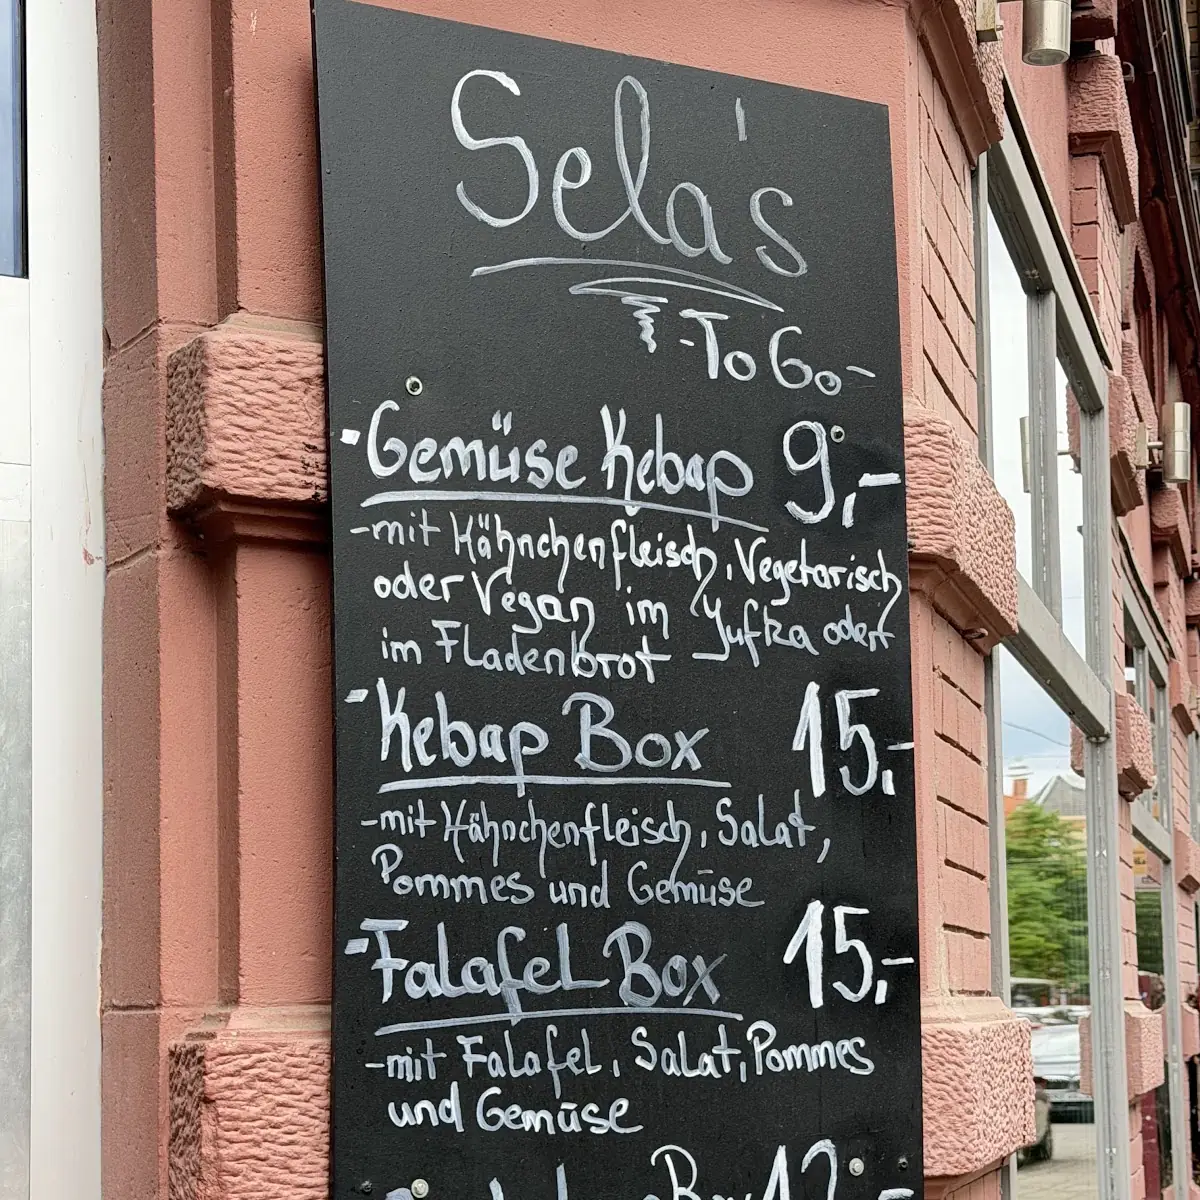 Sela's
-To Go-
-Gemüse Kebap 9,-
-mit Hähnchenfleisch, Vegetarisch
oder Vegan im Yufka oder
im Fladenbrot
-Kebap Box 15,-
-mit Hähnchenfleisch, Salat,
Pommes und Gemüse
-Falafel Box 15,-
-mit Falafel, Salat, Pommes
und Gemüse
Box